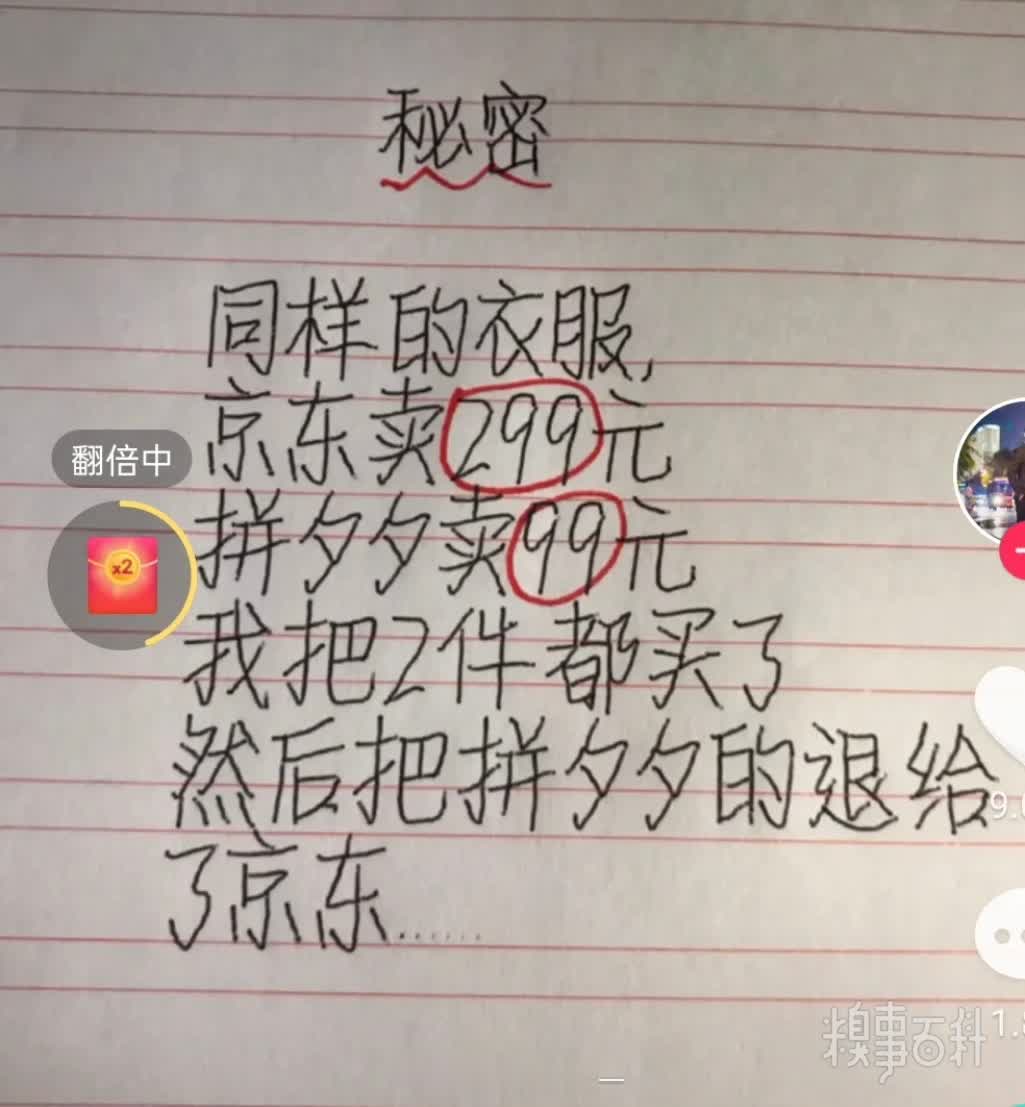 秘密
同样的衣服,
京东卖299元
拼夕夕卖99元
我把2件都买了
然后把拼夕夕的退给
了京东......
翻倍中
x2
糗事百科